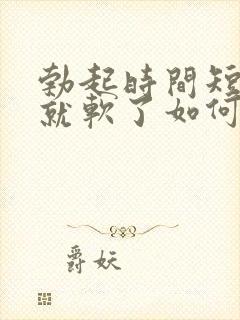 勃起時間短
就軟了如何
爵妖